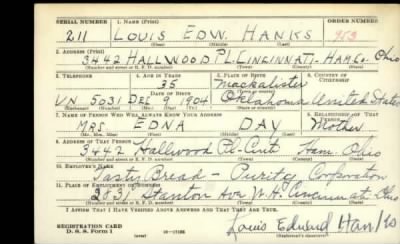 SERIAL NUMBER 1. NAME (Print) ORDER NUMBER
211 LOUIS EDW. HANKS 953
(First) (Middle) (Last)
2. ADDRESS (Print)
3442 HALLWOOD PL. CINCINNATI - HAM Co. Ohio
(Number and street or R. F. D. number) (Town) (County) (State)
3. TELEPHONE 4. AGE IN YEARS 5. PLACE OF BIRTH 6. COUNTRY OF CITIZENSHIP
35 Mackalister
DATE OF BIRTH
UN. 5031 DEC 9 1904 Oklahoma United States
(Exchange) (Number) (Mo.) (Day) (Yr.) (State or country)
7. NAME OF PERSON WHO WILL ALWAYS KNOW YOUR ADDRESS 8. RELATIONSHIP OF THAT PERSON
MRS EDNA DAY Mother
(Mr., Mrs., Miss) (First) (Middle) (Last)
9. ADDRESS OF THAT PERSON
3442 Hallwood Pl- Ham. Ohio
(Number and street or R. F. D. number) (Town) (County) (State)
10. EMPLOYER'S NAME
Tasty Bread - Purity Corporation
11. PLACE OF EMPLOYMENT OR BUSINESS
2837 Stanton Ave W.H. Cincinnati Ohio
(Number and street or R. F. D. number) (Town) (County) (State)
I AFFIRM THAT I HAVE VERIFIED ABOVE ANSWERS AND THAT THEY ARE TRUE.
REGISTRATION CARD
D. S. S. Form 1 (over) Louis Edward Hanks
(Registrant's signature)